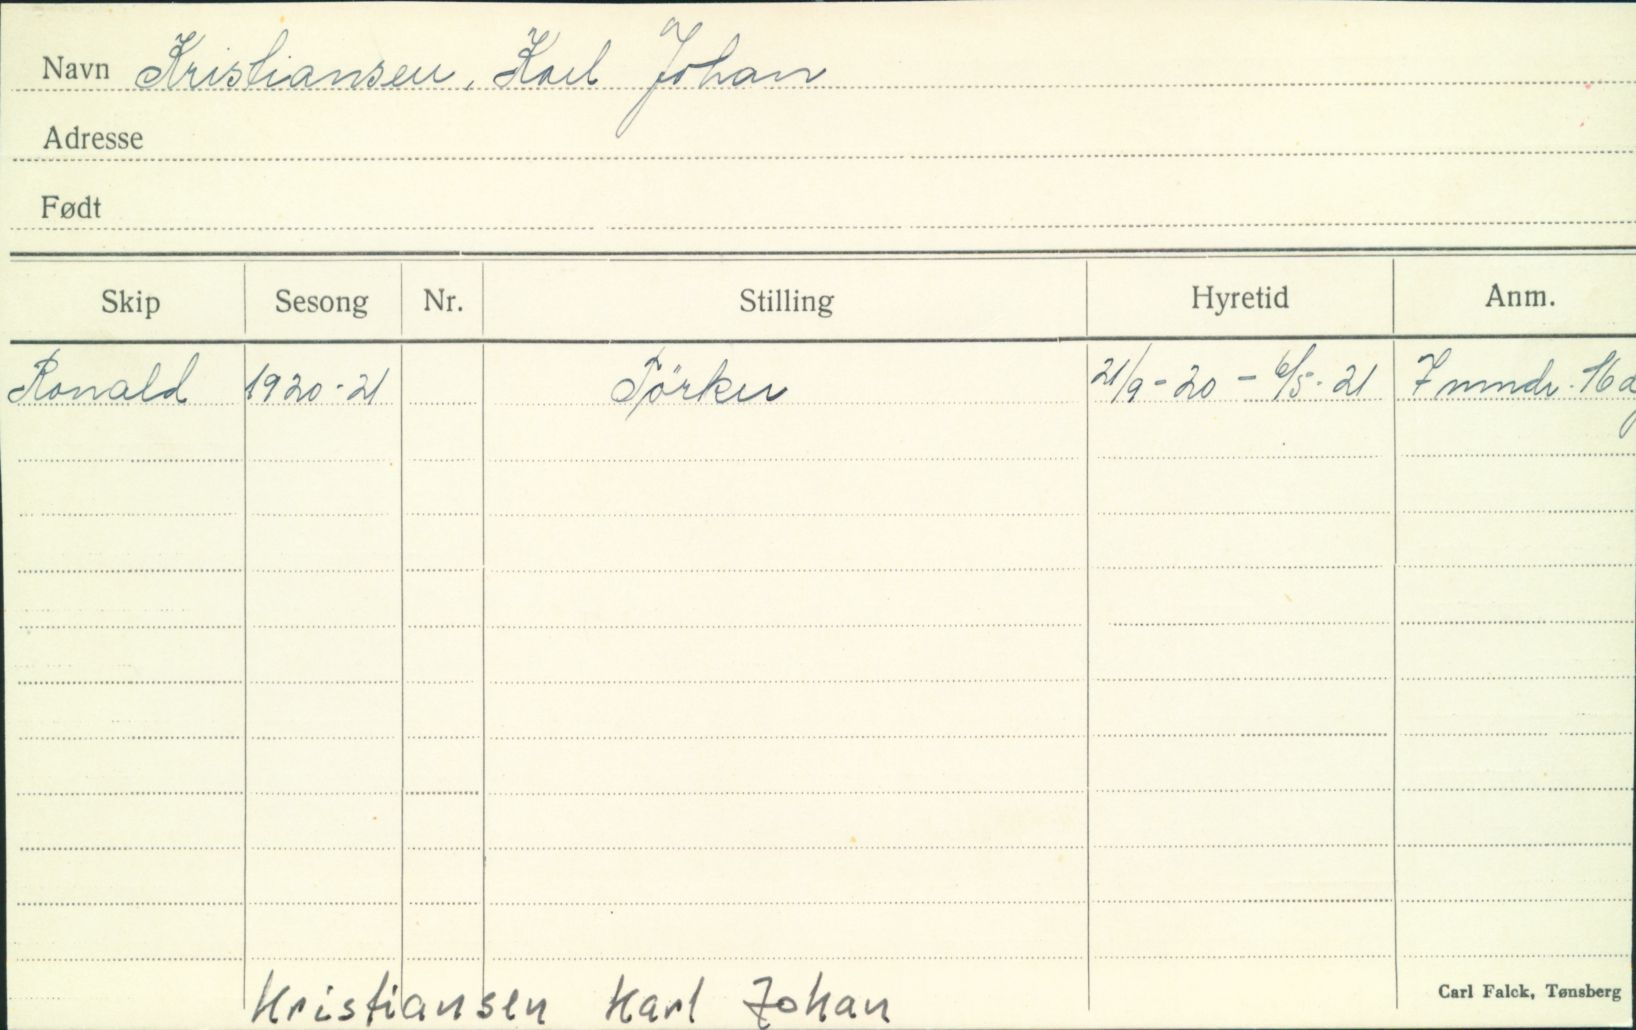 Navn Kristiansen, Karl Johan
Adresse
Født
Skip Sesong Nr. Stilling Hyretid Anm.
Ronald 1920-21 Törker 21/9-20 - 6/5-21 7 mndr. 16 dg
Kristiansen Karl Johan
Carl Falck, Tønsberg